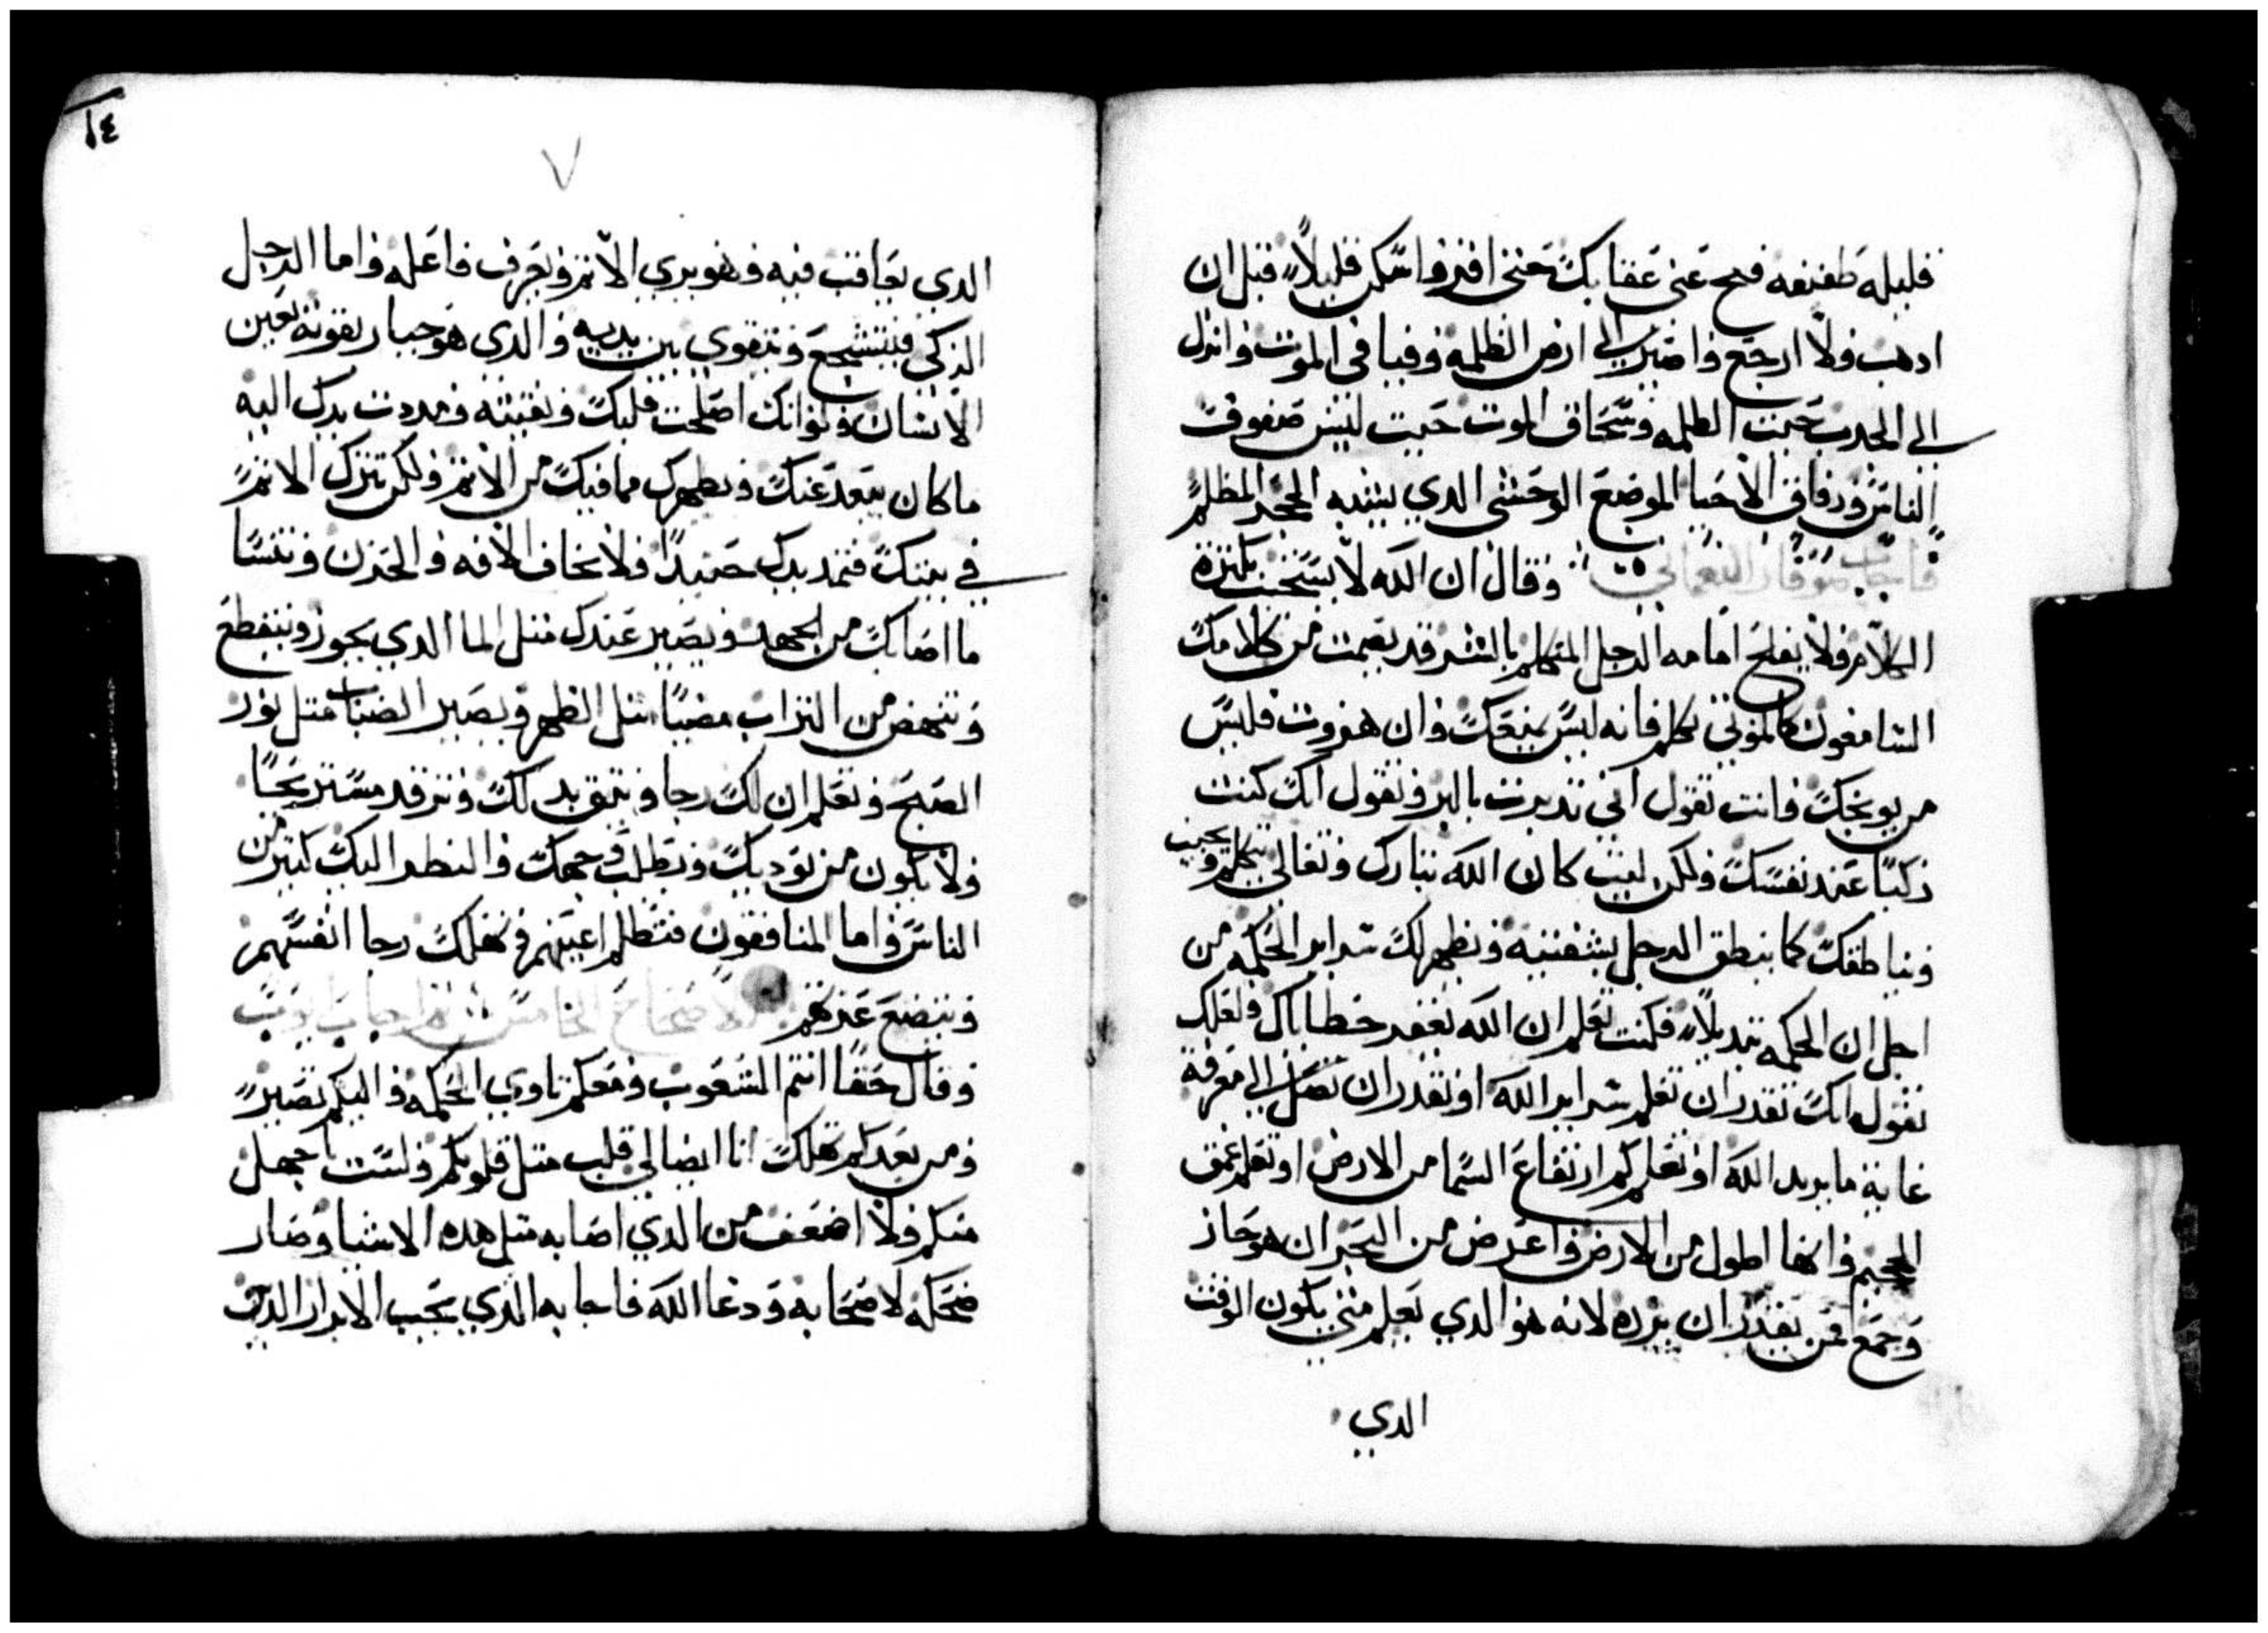 قليله طفيفه فنح عني عقابك حتى افتر واسكن قليلاً قبل ان
ادهب ولا ارجع واصير الي ارض الظلمه وفيافي الموت وانزل
الي الجدب حيت الظلمه وسحاق الموت حيت ليس صفوف
الناس ورفاق الاحيا الموضع الوحشي الدي يشبه الحجر المظلم
فاجاب صوفار النعماني وقال ان الله لا يستخب بكثرة
الكلام ولا يفلح امامه الرجل المتكلم بالشر قد يصمت من كلامك
السامعون كالموتي تكلم فانه ليس يمنعك وان هزوت فليس
من يوبخك فانت تقول اني تدبرت بالبر وتقول انك كنت
زكيًا عند نفسك ولكن ليت كان الله تبارك وتعالي يتكلم ويجيب
ويناطقك كما ينطق الرجل بشفتيه ويظهر لك سراير الحكمه من
اجل ان الحكمه تبديلاً فكنت تعلم ان الله يغفر خطاياك ولعلك
تقول انك تقدر ان تعلم سراير الله او تقدر ان تصل الي معرفة
غاية ما يريد الله او تعلم كم ارتفاع السما من الارض او تعلم عمق
الجحيم وانها اطول من الارض واعرض من البحر ان هو جاز
وجمع فمن يقدر ان يرده لانه هو الدي يعلم متي يكون الوقت
الدي
١٤
٧
الدي يعاقب فيه وهو يري الاثم ويعرف فاعله واما الرجل
الزكي فيتشجع ويتقوي بين يديه والدي هو جبار بقوته يعين
الانسان ولو انك اصلحت قلبك ونقيته ومددت يدك اليه
ما كان يبعد عنك ويطهرك مما فيك من الاثم ولكن تترك الاثم
في بيتك فتمد يدك حينيدًا ولا تخاف الافه والحزن وتنسا
ما اصابك من الجهد ويصير عندك متل الما الدي يجوز وينقطع
وتنهض من التراب مضيًا متل الظهر ويصير الضباب متل نور
الصبح وتعلم ان لك رجا ويتق بدلك وترقد مستريحًا
ولا يكون من يوديك ويطلب وجهك والنظر اليك كتير من
الناس واما المنافقون فتظلم اعينهم ويهلك رجا انفسهم
وينضع عزهم الاصحاح الخامس اجاب ايوب
وقال حقًا انتم الشعوب ومعكم تاوي الحكمه واليكم تصير
ومن بعدكم تهلك انا ايضا لي قلب متل قلوبكم ولست باجهل
منكم ولا اضعف من الدي اصابه متل هده الاشيا وصار
ضحكه لاصحابه ودعا الله فاجابه الدي يجيب الابرار الدين